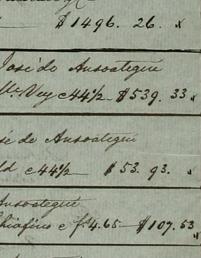 $1496. 26. x
José de Ansoategui
Vey c 44½ $539. 33 x
sé de Ansoategui
ld c 44½ $53. 93. x
Ansoategui
hiofino c fs 4.65 - $107.53 x